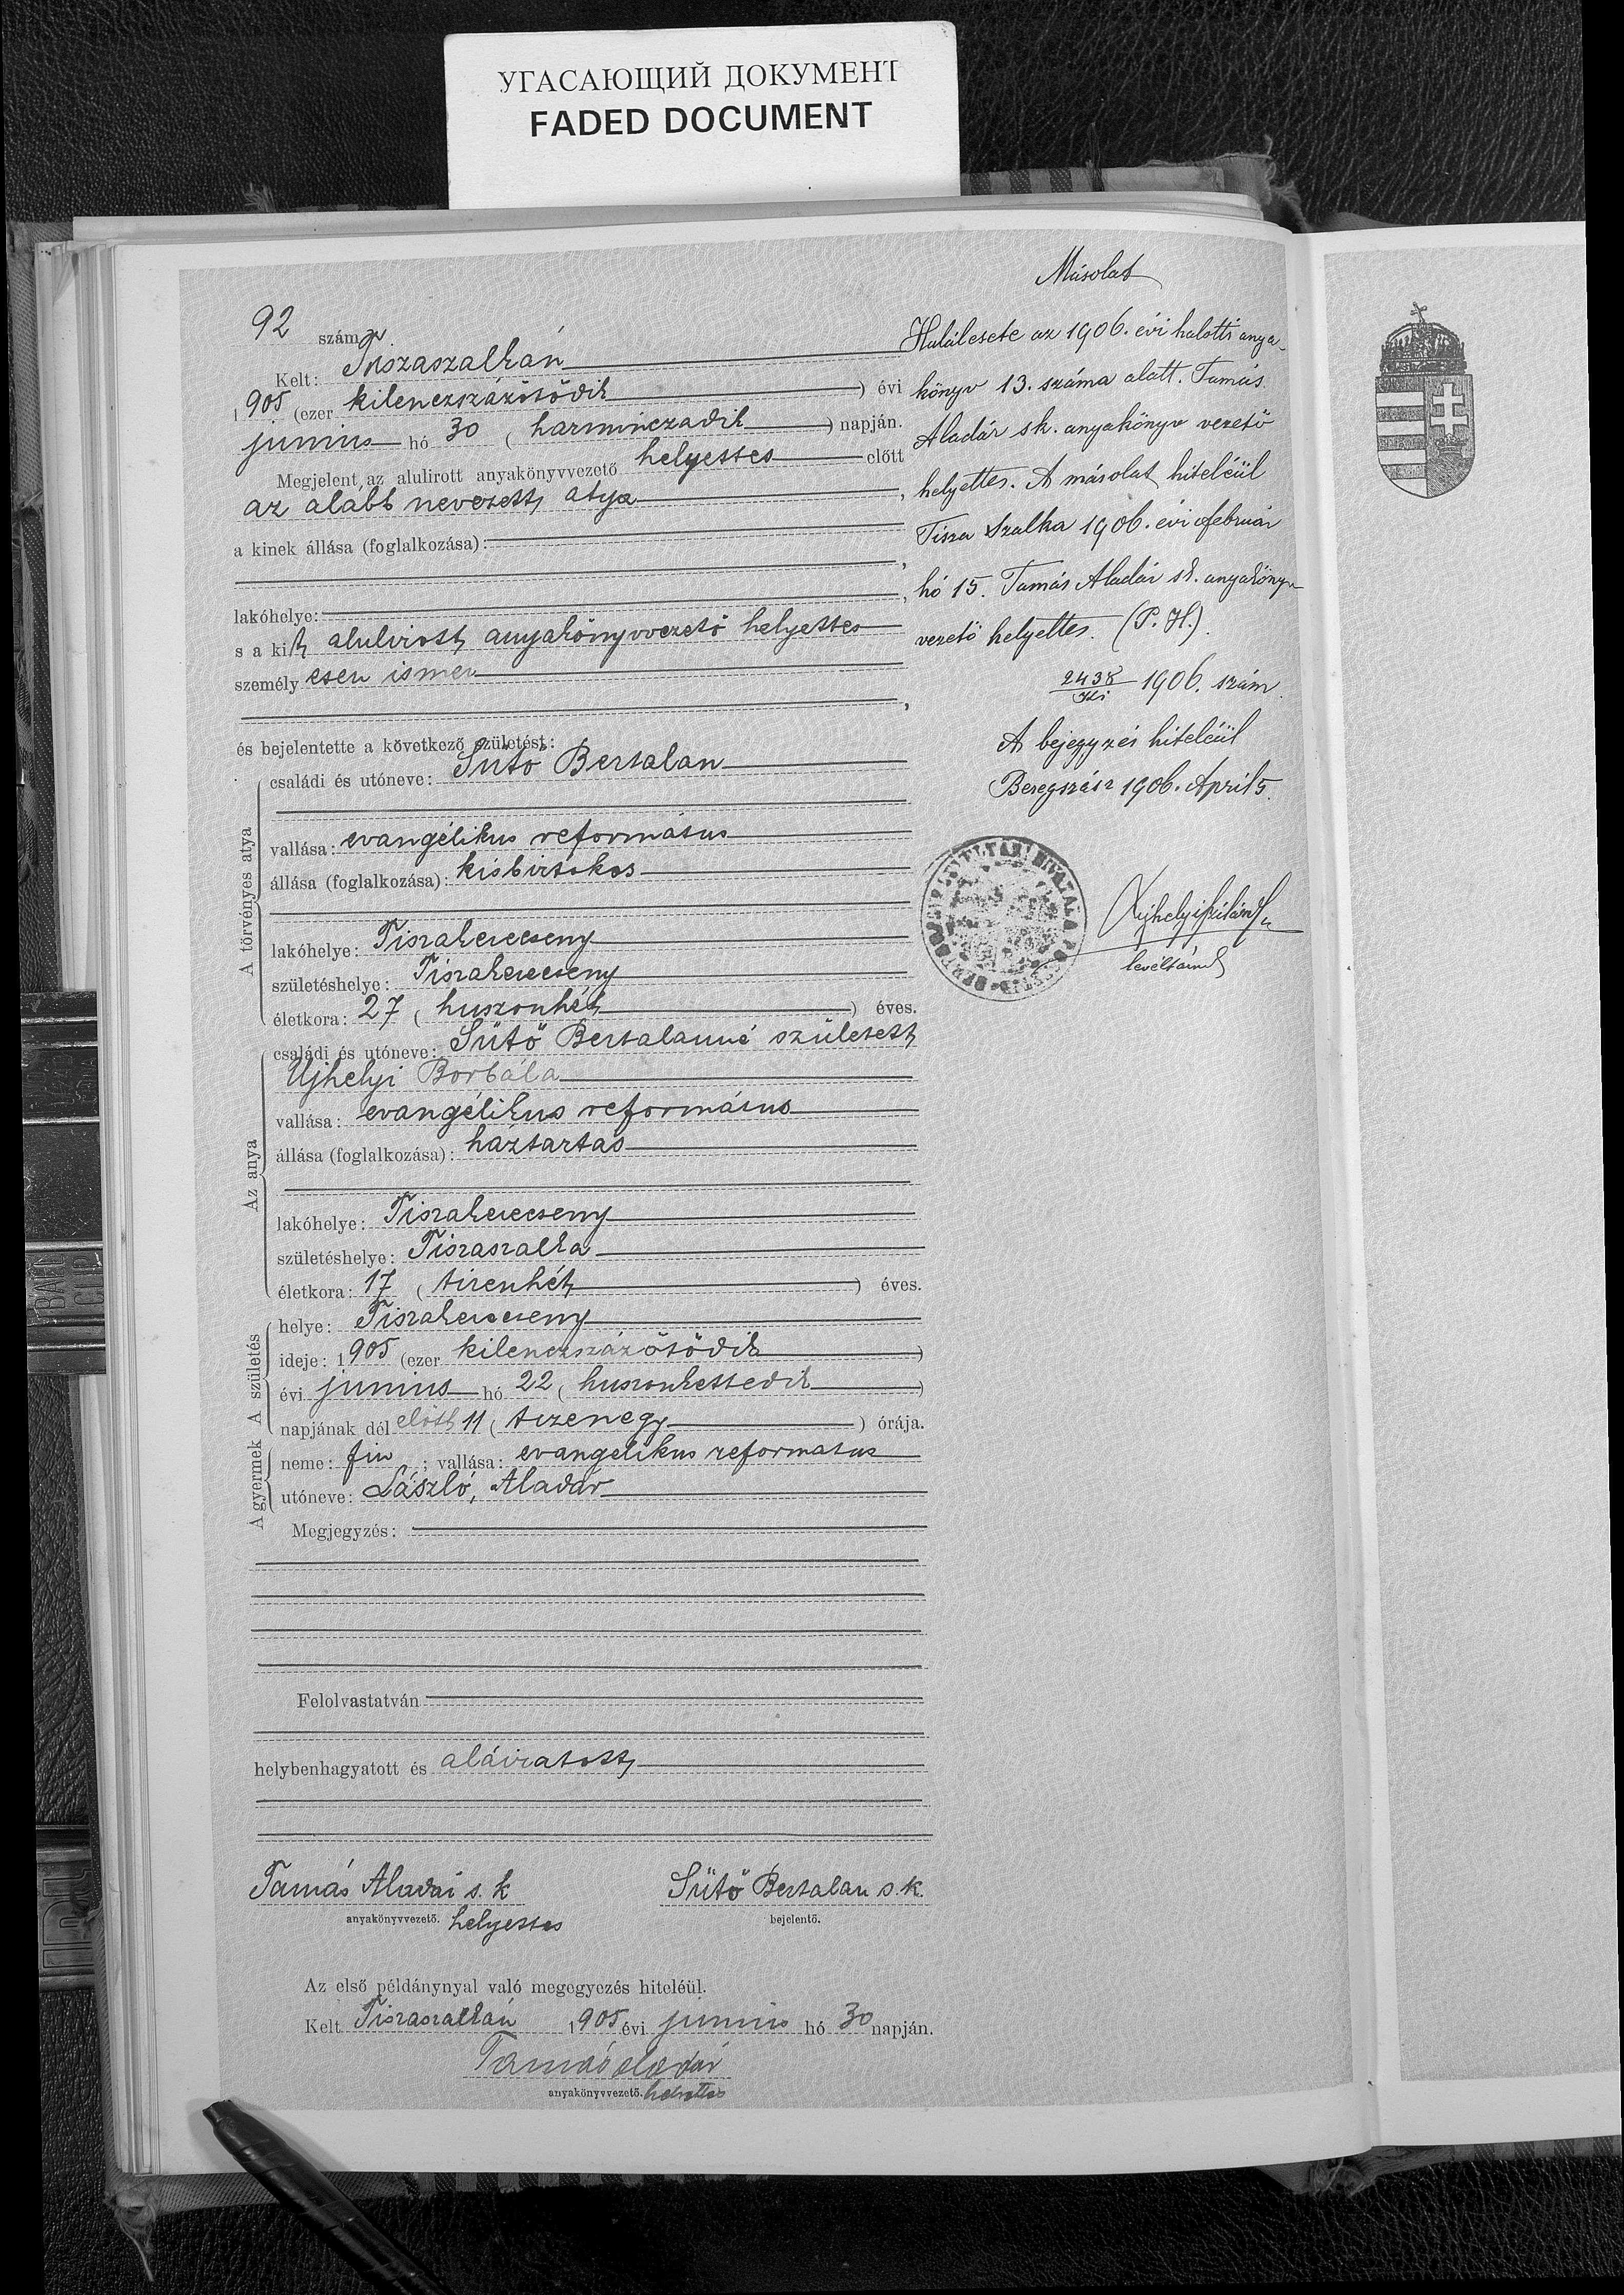 УГАСАЮЩИЙ ДОКУМЕНТ
FADED DOCUMENT
92 szám
Kelt: Tiszaszalkán
1905 (ezer kilenczszázötödik) évi
junius hó 30 (harminczadik) napján.
Megjelent az alulirott anyakönyvvezető helyettes előtt
az alább nevezett atya,
a kinek állása (foglalkozása):
,
lakóhelye:,
s a kit alulirott anyakönyvvezető helyettes
személyesen ismer
,
és bejelentette a következő születést:
A törvényes atya
családi és utóneve: Sütő Bertalan
vallása: evangélikus református
állása (foglalkozása): kisbirtokos
lakóhelye: Tiszakerecseny
születéshelye: Tiszakerecseny
életkora: 27 (huszonhét) éves.
Az anya
családi és utóneve: Sütő Bertalanné született
Ujhelyi Borbála
vallása: evangélikus református
állása (foglalkozása): háztartás
lakóhelye: Tiszakerecseny
születéshelye: Tiszaszalka
életkora: 17 (tizenhét) éves.
A születés
helye: Tiszakerecseny
ideje: 1905 (ezer kilenczszázötödik)
évi junius hó 22 (huszonkettedik)
napjának dél előtt 11 (tizenegy) órája.
A gyermek
neme: fiu; vallása: evangelikus reformatus
utóneve: László, Aladár
Megjegyzés:
Felolvastatván
helybenhagyatott és aláiratott
Tamás Aladár s. k
anyakönyvvezető. helyettes
Sütő Bertalan s. k.
bejelentő.
Az első példánynyal való megegyezés hiteléül.
Kelt Tiszaszalkán 1905 évi junius hó 30 napján.
Tamás Aladár
anyakönyvvezető. helyettes
Másolat
Halálesete az 1906. évi halotti anya-
könyv 13. száma alatt. Tamás
Aladár sk. anyakönyv vezető
helyettes. A másolat hiteléül
Tisza Szalka 1906. évi február
hó 15. Tamás Aladár sk. anyakönyv
vezető helyettes. (P. H.)
2438/ki 1906. szám.
A bejegyzés hiteléül
Beregszász 1906. April 5.
levéltárnok